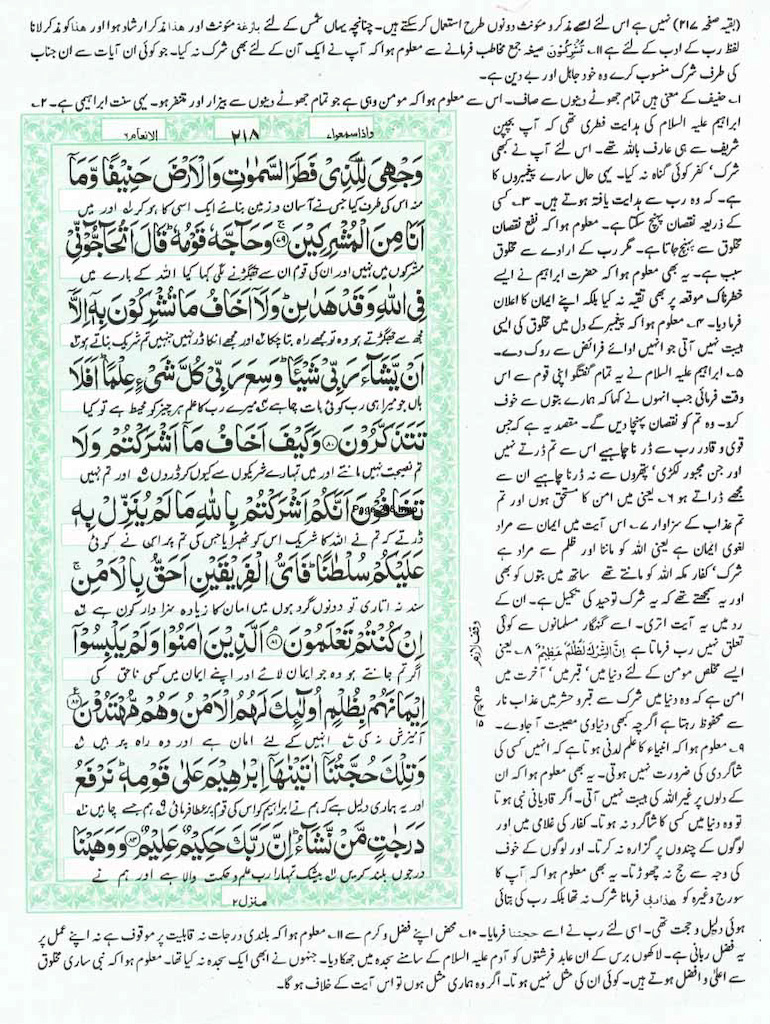 (بقیہ صفحہ ۲۱۷) نہیں ہے اس لئے اسے مذکر و مؤنث دونوں طرح استعمال کر سکتے ہیں۔ چنانچہ یہاں شمس کے لئے بازغۃ مؤنث اور ھذا مذکر ارشاد ہوا اور ھذا کو مذکر لانا
لفظ رب کے ادب کے لئے ہے ۱۱۔ تُشْرِكُوْنَ صیغہ جمع مخاطب فرمانے سے معلوم ہوا کہ آپ نے ایک آن کے لئے بھی شرک نہ کیا۔ جو کوئی ان آیات سے ان جناب
کی طرف شرک منسوب کرے وہ خود جاہل اور بے دین ہے۔
۱۔ حنیف کے معنی ہیں تمام جھوٹے دینوں سے صاف۔ اس سے معلوم ہوا کہ مومن وہی ہے جو تمام جھوٹے دینوں سے بیزار اور متنفر ہو۔ یہی سنت ابراہیمی ہے۔ ۲۔
ابراہیم علیہ السلام کی ہدایت فطری تھی کہ آپ بچپن
شریف سے ہی عارف باللہ تھے۔ اس لئے آپ نے کبھی
شرک، کفر کوئی گناہ نہ کیا۔ یہی حال سارے پیغمبروں کا
ہے۔ کہ وہ رب سے ہدایت یافتہ ہوتے ہیں۔ ۳۔ کسی
کے ذریعہ نقصان پہنچ سکتا ہے۔ معلوم ہوا کہ نفع نقصان
مخلوق سے پہنچ جاتا ہے۔ مگر رب کے ارادے سے مخلوق
سبب ہے۔ یہ بھی معلوم ہوا کہ حضرت ابراہیم نے ایسے
خطرناک موقعہ پر بھی تقیہ نہ کیا بلکہ اپنے ایمان کا اعلان
فرما دیا۔ ۴۔ معلوم ہوا کہ پیغمبر کے دل میں مخلوق کی ایسی
ہیبت نہیں آتی جو انہیں ادائے فرائض سے روک دے۔
۵۔ ابراہیم علیہ السلام نے یہ تمام گفتگو اپنی قوم سے اس
وقت فرمائی جب انہوں نے کہا کہ ہمارے بتوں سے خوف
کرو۔ وہ تم کو نقصان پہنچا دیں گے۔ مقصد یہ ہے کہ جس
قوی و قادر رب سے ڈرنا چاہیے اس سے تم ڈرتے نہیں
اور جن مجبور لکڑی، پتھروں سے نہ ڈرنا چاہیے ان سے
مجھے ڈراتے ہو ۶۔ یعنی میں امن کا مستحق ہوں اور تم
تم عذاب کے سزاوار ۷۔ اس آیت میں ایمان سے مراد
لغوی ایمان ہے یعنی اللہ کو ماننا اور ظلم سے مراد ہے
شرک، کفار مکہ اللہ کو مانتے تھے ساتھ میں بتوں کو بھی
اور یہ سمجھتے تھے کہ یہ شرک توحید کی تکمیل ہے۔ ان کے
رد میں یہ آیت اتری۔ اسے گنہگار مسلمانوں سے کوئی
تعلق نہیں رب فرماتا ہے اِنَّ الشِّرْكَ لَظُلْمٌ عَظِيْمٌ ۸۔ یعنی
ایسے مخلص مومن کے لئے دنیا میں، قبر میں، آخرت میں
امن ہے کہ وہ دنیا میں شرک سے قبر و حشر میں عذاب نار
سے محفوظ رہتا ہے اگرچہ کبھی دنیاوی مصیبت آ جاوے۔
۹۔ معلوم ہوا کہ انبیاء کا علم لدنی ہوتا ہے کہ انہیں کسی کی
شاگردی کی ضرورت نہیں ہوتی۔ یہ بھی معلوم ہوا کہ ان
کے دلوں پر غیر اللہ کی ہیبت نہیں آتی۔ اگر قادیانی نبی ہوتا
تو وہ دنیا میں کسی کا شاگرد نہ ہوتا۔ کفار کی غلامی میں اور
لوگوں کے چندوں پر گزارہ نہ کرتا۔ اور لوگوں کے خوف
کی وجہ سے حج نہ چھوڑتا۔ یہ بھی معلوم ہوا کہ آپ کا
سورج وغیرہ کو ھذا ربی فرمانا شرک نہ تھا بلکہ رب کی بتائی
واذا سمعوا ۷
۲۱۸
الانعام ۶
وَجْهِيَ لِلَّذِيْ فَطَرَ السَّمٰوٰتِ وَالْاَرْضَ حَنِيْفًا وَّمَآ
منہ اس کی طرف کیا جس نے آسمان و زمین بنائے ایک اسی کا ہو کر لہ اور میں
اَنَا مِنَ الْمُشْرِكِيْنَ ۷۹ وَحَآجَّهٗ قَوْمُهٗ قَالَ اَتُحَآجُّوْنِّيْ
مشرکوں میں نہیں اور ان کی قوم ان سے جھگڑنے لگی کہا کیا اللہ کے بارے میں
فِي اللّٰهِ وَقَدْ هَدٰىنِ وَلَآ اَخَافُ مَا تُشْرِكُوْنَ بِهٖٓ اِلَّآ
مجھ سے جھگڑتے ہو وہ تو مجھے راہ بتا چکا اور مجھے انکا ڈر نہیں جنہیں تم شریک بتاتے ہو
اَنْ يَّشَآءَ رَبِّيْ شَيْـًٔا وَسِعَ رَبِّيْ كُلَّ شَيْءٍ عِلْمًا اَفَلَا
ہاں جو میرا ہی رب کوئی بات چاہے میرے رب کا علم ہر چیز کو محیط ہے تو کیا
تَتَذَكَّرُوْنَ ۸۰ وَكَيْفَ اَخَافُ مَآ اَشْرَكْتُمْ وَلَا
تم نصیحت نہیں مانتے اور میں تمہارے شریکوں سے کیوں کر ڈروں اور تم نہیں
تَخَافُوْنَ اَنَّكُمْ اَشْرَكْتُمْ بِاللّٰهِ مَا لَمْ يُنَزِّلْ بِهٖ
ڈرتے کہ تم نے اللہ کا شریک اس کو ٹھہرایا جس کی تم پر اس نے کوئی
عَلَيْكُمْ سُلْطٰنًا فَاَيُّ الْفَرِيْقَيْنِ اَحَقُّ بِالْاَمْنِ
سند نہ اتاری تو دونوں گروہوں میں امان کا زیادہ سزا دار کون ہے
اِنْ كُنْتُمْ تَعْلَمُوْنَ ۸۱ اَلَّذِيْنَ اٰمَنُوْا وَلَمْ يَلْبِسُوْٓا
اگر تم جانتے ہو وہ جو ایمان لائے اور اپنے ایمان میں کسی ناحق کی
اِيْمَانَهُمْ بِظُلْمٍ اُولٰٓئِكَ لَهُمُ الْاَمْنُ وَهُمْ مُّهْتَدُوْنَ ۸۲
آمیزش نہ کی انہیں کے لئے امان ہے اور وہ راہ پر ہیں
وَتِلْكَ حُجَّتُنَآ اٰتَيْنٰهَآ اِبْرٰهِيْمَ عَلٰى قَوْمِهٖ نَرْفَعُ
اور یہ ہماری دلیل ہے کہ ہم نے ابراہیم کو اس کی قوم پر عطا فرمائی ۹ ہم جسے چاہیں
دَرَجٰتٍ مَّنْ نَّشَآءُ اِنَّ رَبَّكَ حَكِيْمٌ عَلِيْمٌ ۸۳ وَوَهَبْنَا
درجوں بلند کریں بیشک تمہارا رب علم و حکمت والا ہے اور ہم نے
منزل ۲
وقف لازم
ہوئی دلیل و حجت تھی۔ اسی لئے رب نے اسے حجتنا فرمایا۔ ۱۰۔ محض اپنے فضل و کرم سے ۱۱۔ معلوم ہوا کہ بلندی درجات نہ قابلیت پر موقوف ہے نہ اپنے عمل پر
یہ فضل ربانی ہے۔ لاکھوں برس کے ان عابد فرشتوں کو آدم علیہ السلام کے سامنے سجدہ میں جھکا دیا۔ جنہوں نے ابھی ایک سجدہ نہ کیا تھا۔ معلوم ہوا کہ نبی ساری مخلوق
سے اعلیٰ و افضل ہوتے ہیں۔ کوئی ان کی مثل نہیں ہوتا۔ اگر وہ ہماری مثل ہوں تو اس آیت کے خلاف ہو گا۔